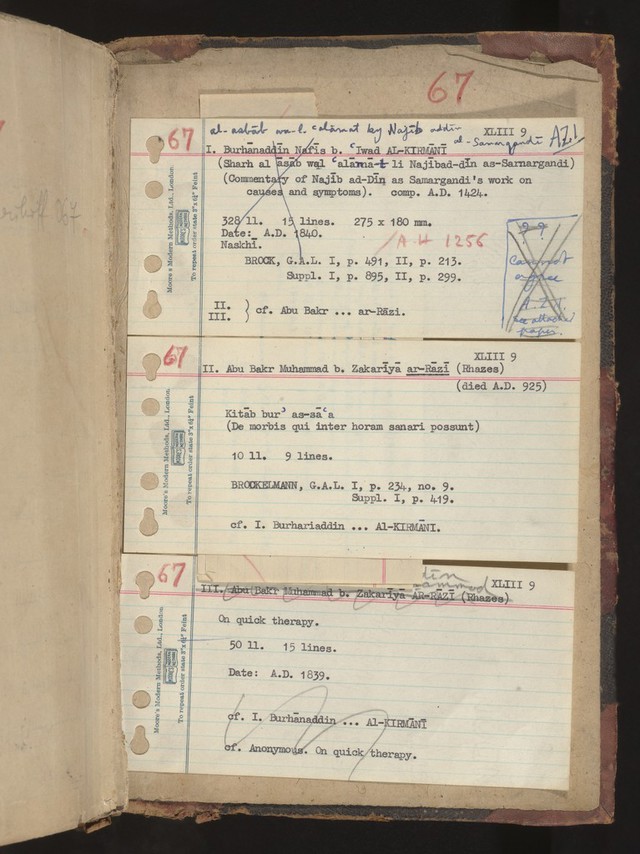 67
al-asbāb wa-l-ʿalāmāt by Najīb addīn
al-Samarqandī A.Z.I
67
XLIII 9
I. Burhānaddīn Nafīs b. ʿIwad AL-KIRMĀNĪ
(Sharh al āsāb wal ʿalāmā-t li Najībad-dīn as-Sarnargandi)
(Commentary of Najīb ad-Dīn as Samargandi's work on
causes and symptoms). comp. A.D. 1424.
328 ll. 15 lines. 275 x 180 mm.
Date: A.D. 1840.
A.H 1256
Naskhī.
BROCK, G.A.L. I, p. 491, II, p. 213.
Suppl. I, p. 895, II, p. 299.
II.
III. } cf. Abu Bakr ... ar-Rāzi.
??
Cannot
agree
A.Z.I.
see attached
paper.
Moore's Modern Methods, Ltd., London
To repeat order state 5"x6¾" Feint
67
XLIII 9
II. Abu Bakr Muhammad b. Zakarīyā ar-Rāzī (Rhazes)
(died A.D. 925)
Kitāb burʾ as-sāʿa
(De morbis qui inter horam sanari possunt)
10 ll. 9 lines.
BROCKELMANN, G.A.L. I, p. 234, no. 9.
Suppl. I, p. 419.
cf. I. Burhariaddin ... Al-KIRMĀNI.
Moore's Modern Methods, Ltd., London
To repeat order state 5"x6¾" Feint
67
XLIII 9
III. Abu Bakr Muhammad b. Zakarīyā AR-RĀZĪ (Rhazes)
On quick therapy.
50 ll. 15 lines.
Date: A.D. 1839.
cf. I. Burhānaddin ... Al-KIRMĀNĪ
cf. Anonymous. On quick therapy.
Moore's Modern Methods, Ltd., London
To repeat order state 5"x6¾" Feint